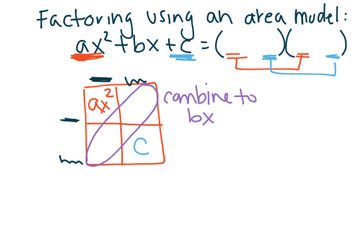 Factoring using an area model:
ax² + bx + c = (      )(      )
ax²
combine to
bx
C